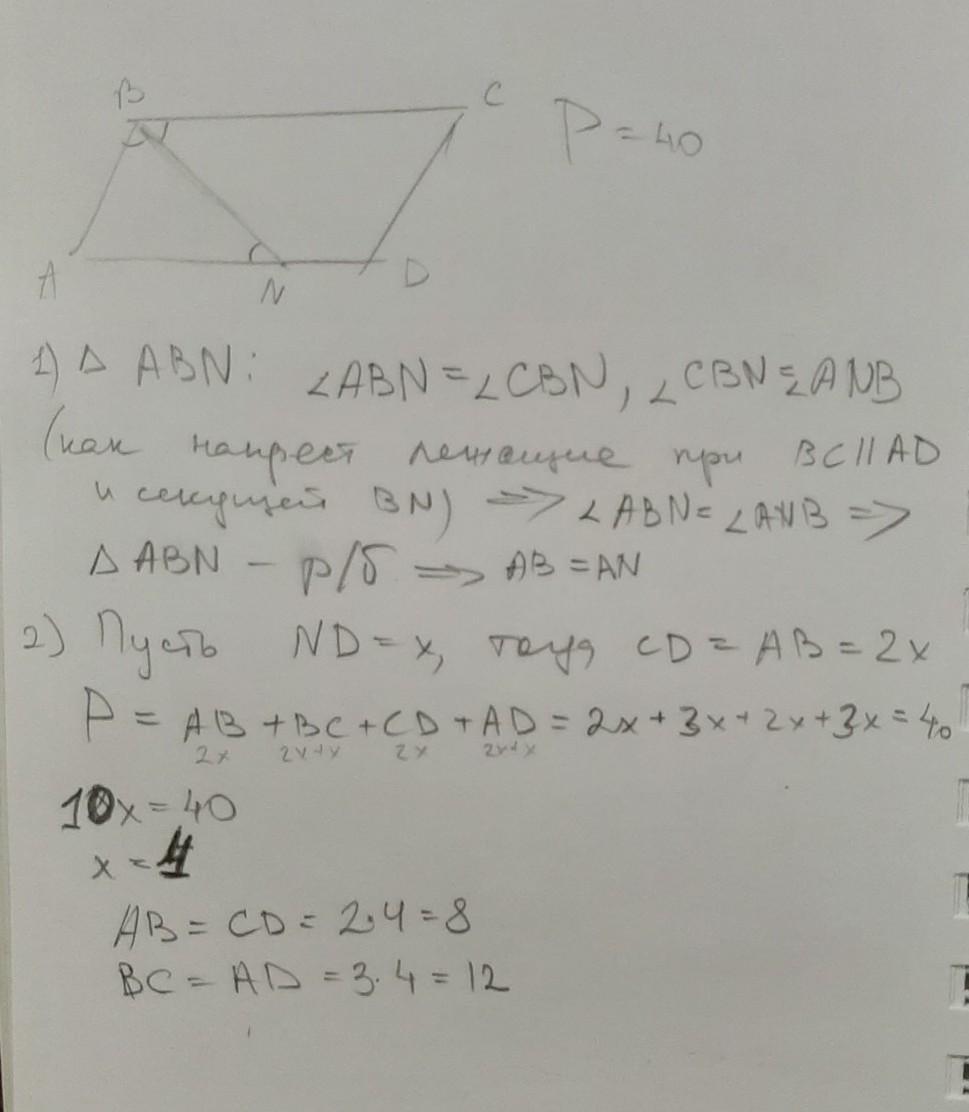 B
C
P = 40
A
N
D
1) Δ ABN: ∠ABN = ∠CBN, ∠CBN = ∠ANB
(как накрест лежащие при BC || AD
и секущей BN) => ∠ABN = ∠ANB =>
Δ ABN - р/б => AB = AN
2) Пусть ND = x, тогда CD = AB = 2x
P = AB + BC + CD + AD = 2x + 3x + 2x + 3x = 40
2x 2x+x 2x 2x+x
10x = 40
x = 4
AB = CD = 2·4 = 8
BC = AD = 3·4 = 12